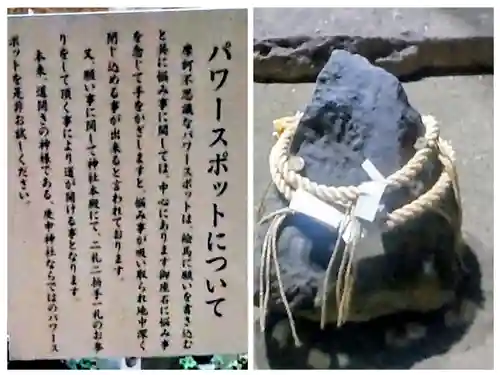 パワースポットについて
摩訶不思議なパワースポットは、絵馬に願いを書き込む
と共に悩み事に関しては、中心にあります御座石に悩み事
を念じて手をかざしますと、悩み事が吸い取られ地中深く
閉じ込める事が出来ると言われております。
又、願い事に関して神社本殿にて、二礼二拍手一礼のお参
りをして頂く事により道が開ける事となります。
本来、道開きの神様である、庚申神社ならではのパワース
ポットを是非お試しください。